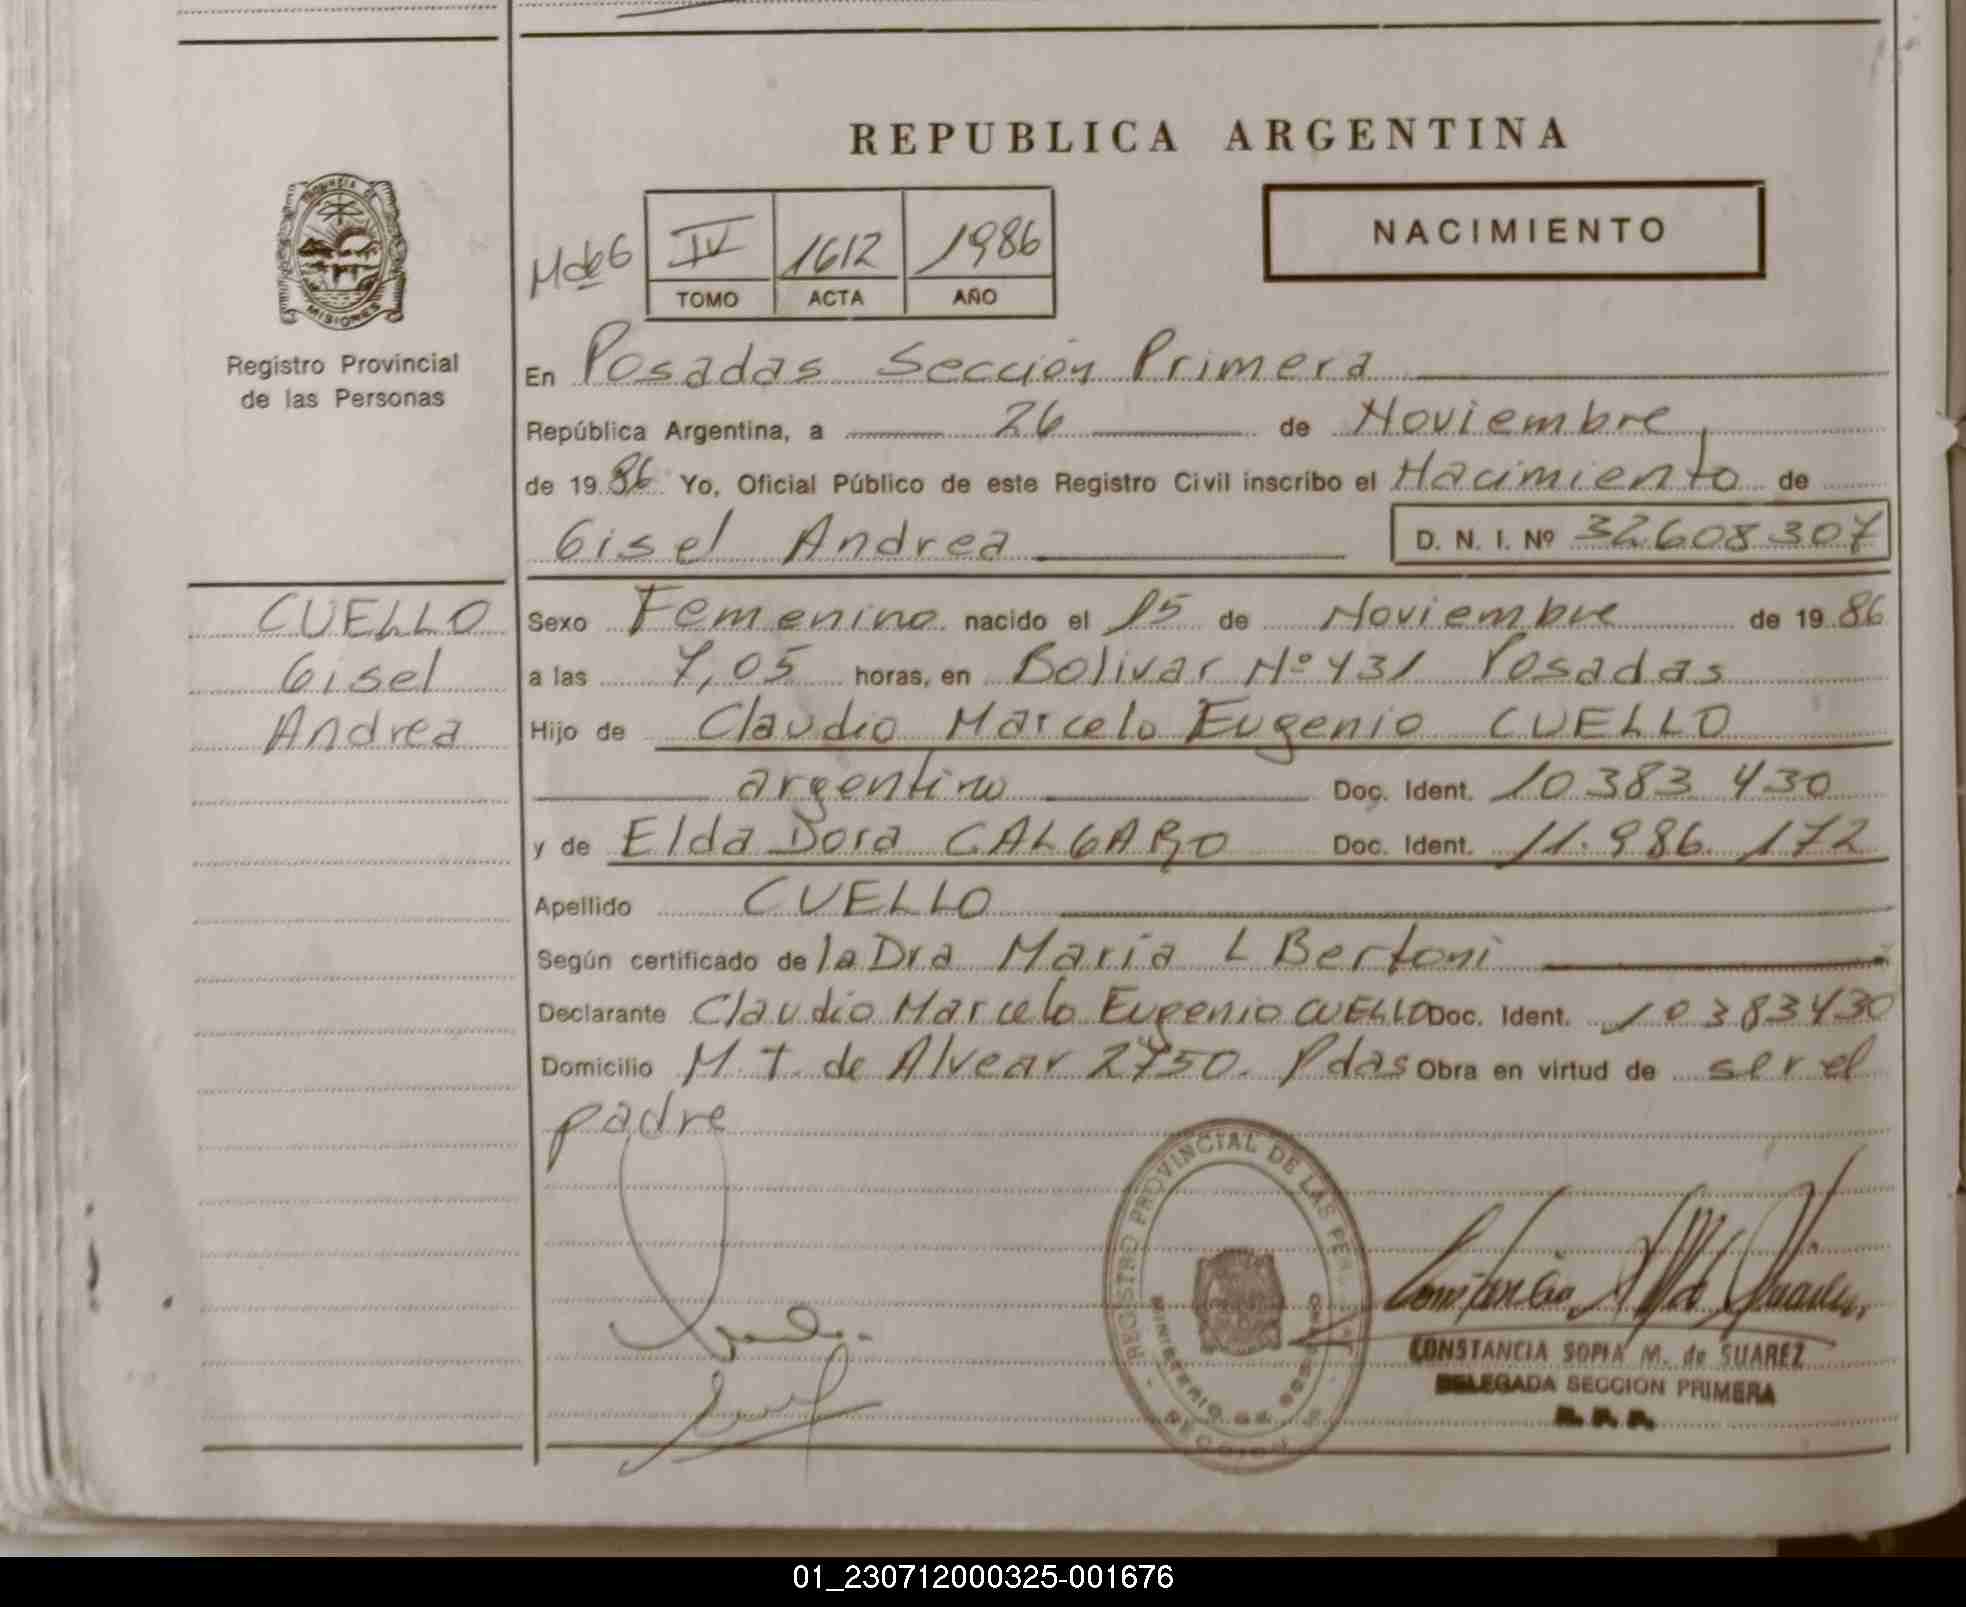 REPUBLICA ARGENTINA
PROVINCIA DE
MISIONES
Registro Provincial
de las Personas
NACIMIENTO
IV 1612 1986
TOMO ACTA AÑO
En Posadas Sección Primera
República Argentina, a 26 de Noviembre
de 1986 Yo, Oficial Público de este Registro Civil inscribo el Nacimiento de
Gisel Andrea D. N. I. Nº 32608307
CUELLO
Gisel
Andrea
Sexo Femenino nacido el 15 de Noviembre de 1986
a las 7,05 horas, en Bolivar Nº 431 Posadas
Hijo de Claudio Marcelo Eugenio CUELLO
argentino Doc. Ident. 10383 430
y de Elda Dora CALGARO Doc. Ident. 11.986.172
Apellido CUELLO
Según certificado de la Dra Maria L Bertoni
Declarante Claudio Marcelo Eugenio CUELLO Doc. Ident. 10383430
Domicilio M. T. de Alvear 2750. Pdas Obra en virtud de ser el
padre
REGISTRO PROVINCIAL DE LAS
MINISTERIO DE
CONSTANCIA SOFIA M. de SUAREZ
DELEGADA SECCION PRIMERA
R. P. P.
01_230712000325-001676